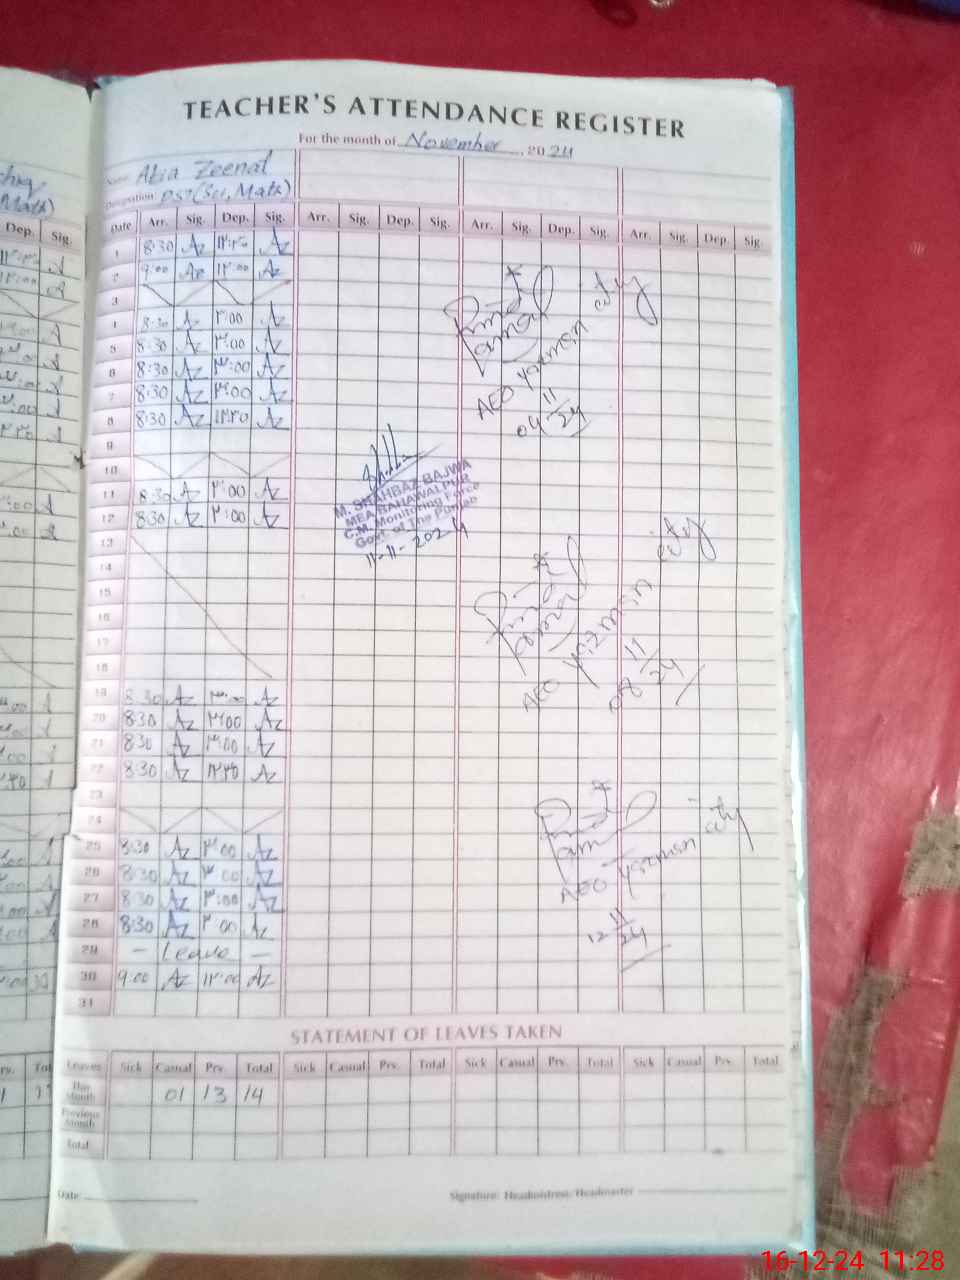 TEACHER'S ATTENDANCE REGISTER
For the month of November, 2024
Name Atia Zeenat
Designation PST (Sci, Math)
Date Arr. Sig. Dep. Sig. Arr. Sig. Dep. Sig. Arr. Sig. Dep. Sig. Arr. Sig. Dep. Sig.
Dep. Sig.
1 8:30 Az Az
2 9:00 Az ۱۲:۰۰ Az
3
4 8:30 Az ۳:00 Az
5 8:30 Az ۳:00 Az
6 8:30 Az ۳:00 Az
7 8:30 Az ۳:00 Az
8 8:30 Az Az
9
10
11 8:30 Az ۳:00 Az
12 8:30 Az ۳:00 Az
13
14
15
16
17
18
19 8:30 Az Az
20 8:30 Az ۳:00 Az
21 8:30 Az ۳:00 Az
22 8:30 Az Az
23
24
25 8:30 Az ۳:00 Az
26 8:30 Az ۳:00 Az
27 8:30 Az ۳:00 Az
28 8:30 Az ۳:00 Az
29 — Leave —
30 9:00 Az ۱۲:00 Az
31
AEO Yazman city
04 11/24
M. SHAHBAZ BAJWA
MEA BAHAWALPUR
C.M. Monitoring Force
Govt of The Punjab
11-11-2024
AEO Yazman city
08 11/24
AEO Yazman city
12 11/24
STATEMENT OF LEAVES TAKEN
Leaves Sick Casual Prv. Total Sick Casual Prv. Total Sick Casual Prv. Total Sick Casual Prv. Total
This Month 01 13 14
Previous Month
Total
Date
Signature: Headmistress/Headmaster
16-12-24 11:28